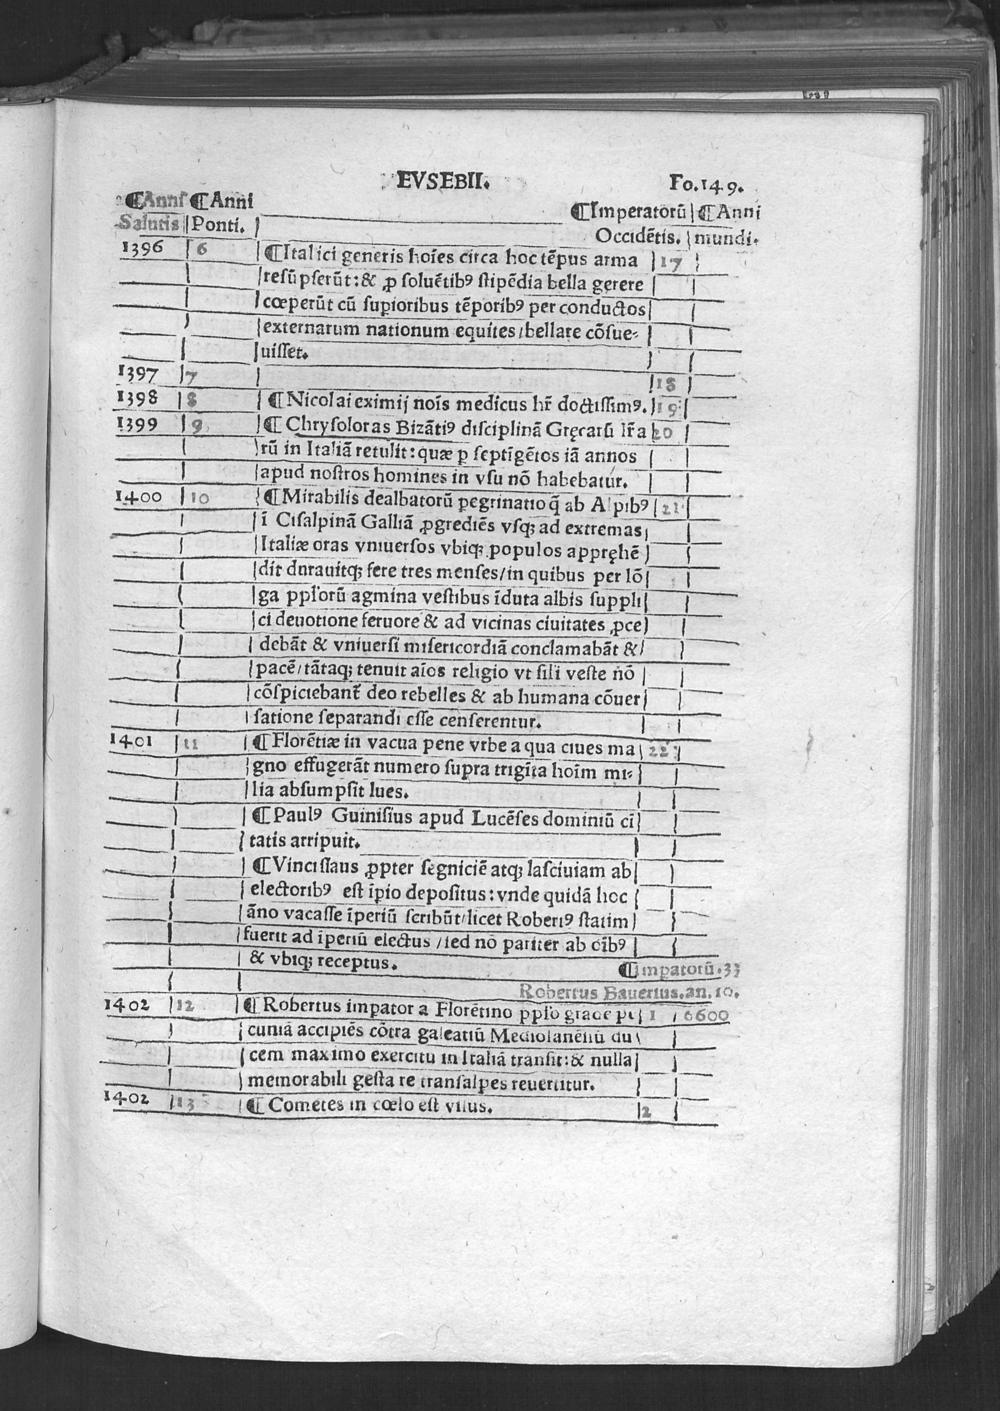 EVSEBII. Fo.149.
¶Anni ¶Anni
¶Imperatorū ¶Anni
Salutis Ponti.
Occidētis. mundi.
1396 6 ¶Italici generis hoīes circa hoc tēpus arma 17
resūpserūt: & ꝓ soluētibꝰ stipēdia bella gerere
cœperūt cū supioribus tēporibꝰ per conductos
externarum nationum equites/bellare cōsue-
uisset.
1397 7 18
1398 8 ¶Nicolai eximij noīs medicus hr̄ doctissimꝰ. 19
1399 9 ¶Chrysoloras Bizātiꝰ disciplinā Gręcarū lr̄a 20
rū in Italiā retulit: quæ p septīgētos iā annos
apud nostros homines in vsu nō habebatur.
1400 10 ¶Mirabilis dealbatorū pegrinatio q̄ ab Alpibꝰ 21
ī Cisalpinā Galliā ꝓgrediēs vsqꝫ ad extremas
Italiæ oras vniuersos vbiqꝫ populos appręhē
dit durauitqꝫ fere tres menses/in quibus per lō
ga ppl'orū agmina vestibus īduta albis suppli
ci deuotione feruore & ad vicinas ciuitates ꝓce
debāt & vniuersi misericordiā conclamabāt &
pacē/tātaqꝫ tenuit aīos religio vt sili veste nō
cōspiciebant̄ deo rebelles & ab humana cōuer
satione separandi esse censerentur.
1401 11 ¶Florētiæ in vacua pene vrbe a qua ciues ma 22
gno effugerāt numero supra trigīta hoīm mi-
lia absumpsit lues.
¶Paulꝰ Guinisius apud Lucēses dominiū ci
tatis arripuit.
¶Vincislaus ꝓpter segniciē atqꝫ lasciuiam ab
electoribꝰ est īpio depositus: vnde quidā hoc
āno vacasse īperiū scribūt/licet Robertꝰ statim
fuerit ad īperiū electus/sed nō pariter ab oībꝰ
& vbiqꝫ receptus. ¶Impatorū.33
Robertus Bauerius.an.10.
1402 12 ¶Robertus impator a Florētino pplo grāde pe 1 6600
cuniā accipiēs cōtra galeatiū Mediolanēnū du
cem maximo exercitu in Italiā transit: & nulla
memorabili gesta re transalpes reuertitur.
1402 13 ¶Cometes in cœlo est visus. 2